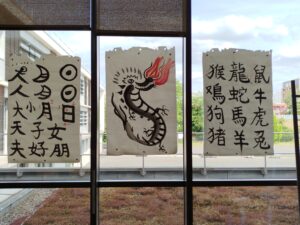 日女朋
月子好
小
人大夫
鼠牛虎兔
龍蛇馬羊
猴鷄狗猪